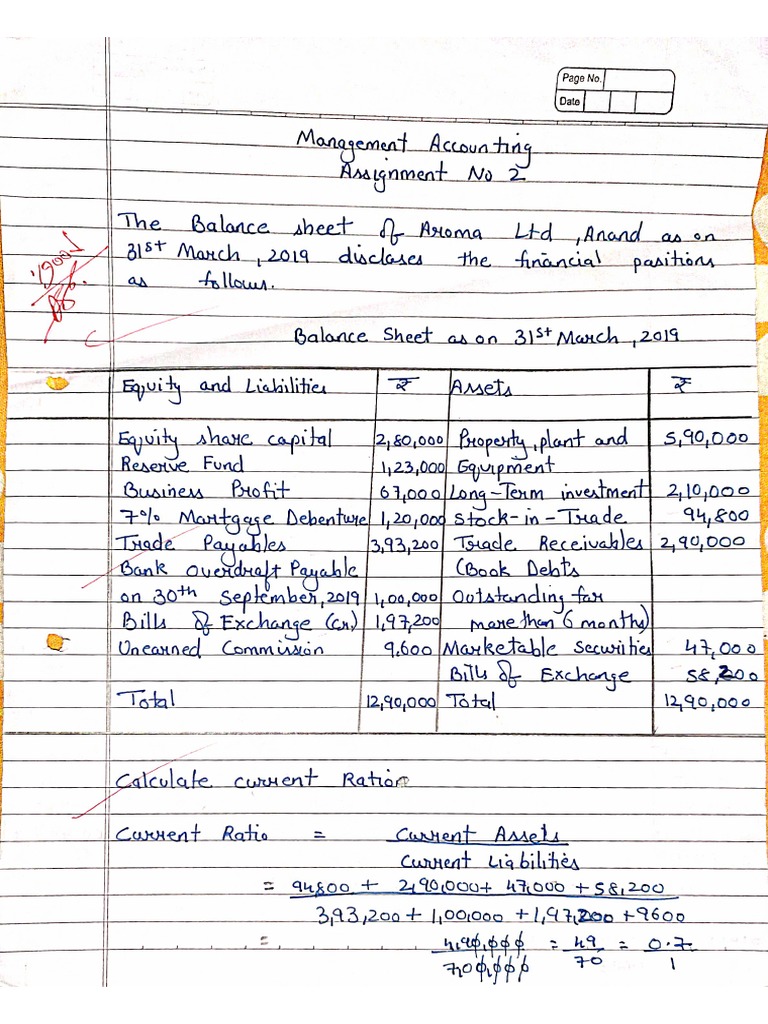 Page No.
Date
Management Accounting
Assignment No 2
The Balance sheet of Aroma Ltd , Anand as on
31st March , 2019 discloses the financial positions
as follows.
Good
Balance Sheet as on 31st March , 2019
Equity and Liabilities ₹ Assets ₹
Equity share capital 2,80,000 Property, plant and 5,90,000
Reserve Fund 1,23,000 Equipment
Business Profit 67,000 Long-Term investment 2,10,000
7% Mortgage Debenture 1,20,000 Stock-in-Trade 94,800
Trade Payables 3,93,200 Trade Receivables 2,90,000
Bank overdraft Payable (Book Debts
on 30th September, 2019 1,00,000 Outstanding for
Bills of Exchange (Cr) 1,97,200 more than 6 months)
Unearned Commission 9,600 Marketable Securities 47,000
Bills of Exchange 58,200
Total 12,90,000 Total 12,90,000
Calculate current Ratio
Current Ratio = Current Assets
Current Liabilities
= 94800 + 2,90,000 + 47,000 + 58,200
3,93,200 + 1,00,000 + 1,97,200 + 9600
= 4,90,000 = 49 = 0.7
7,00,000 70 1